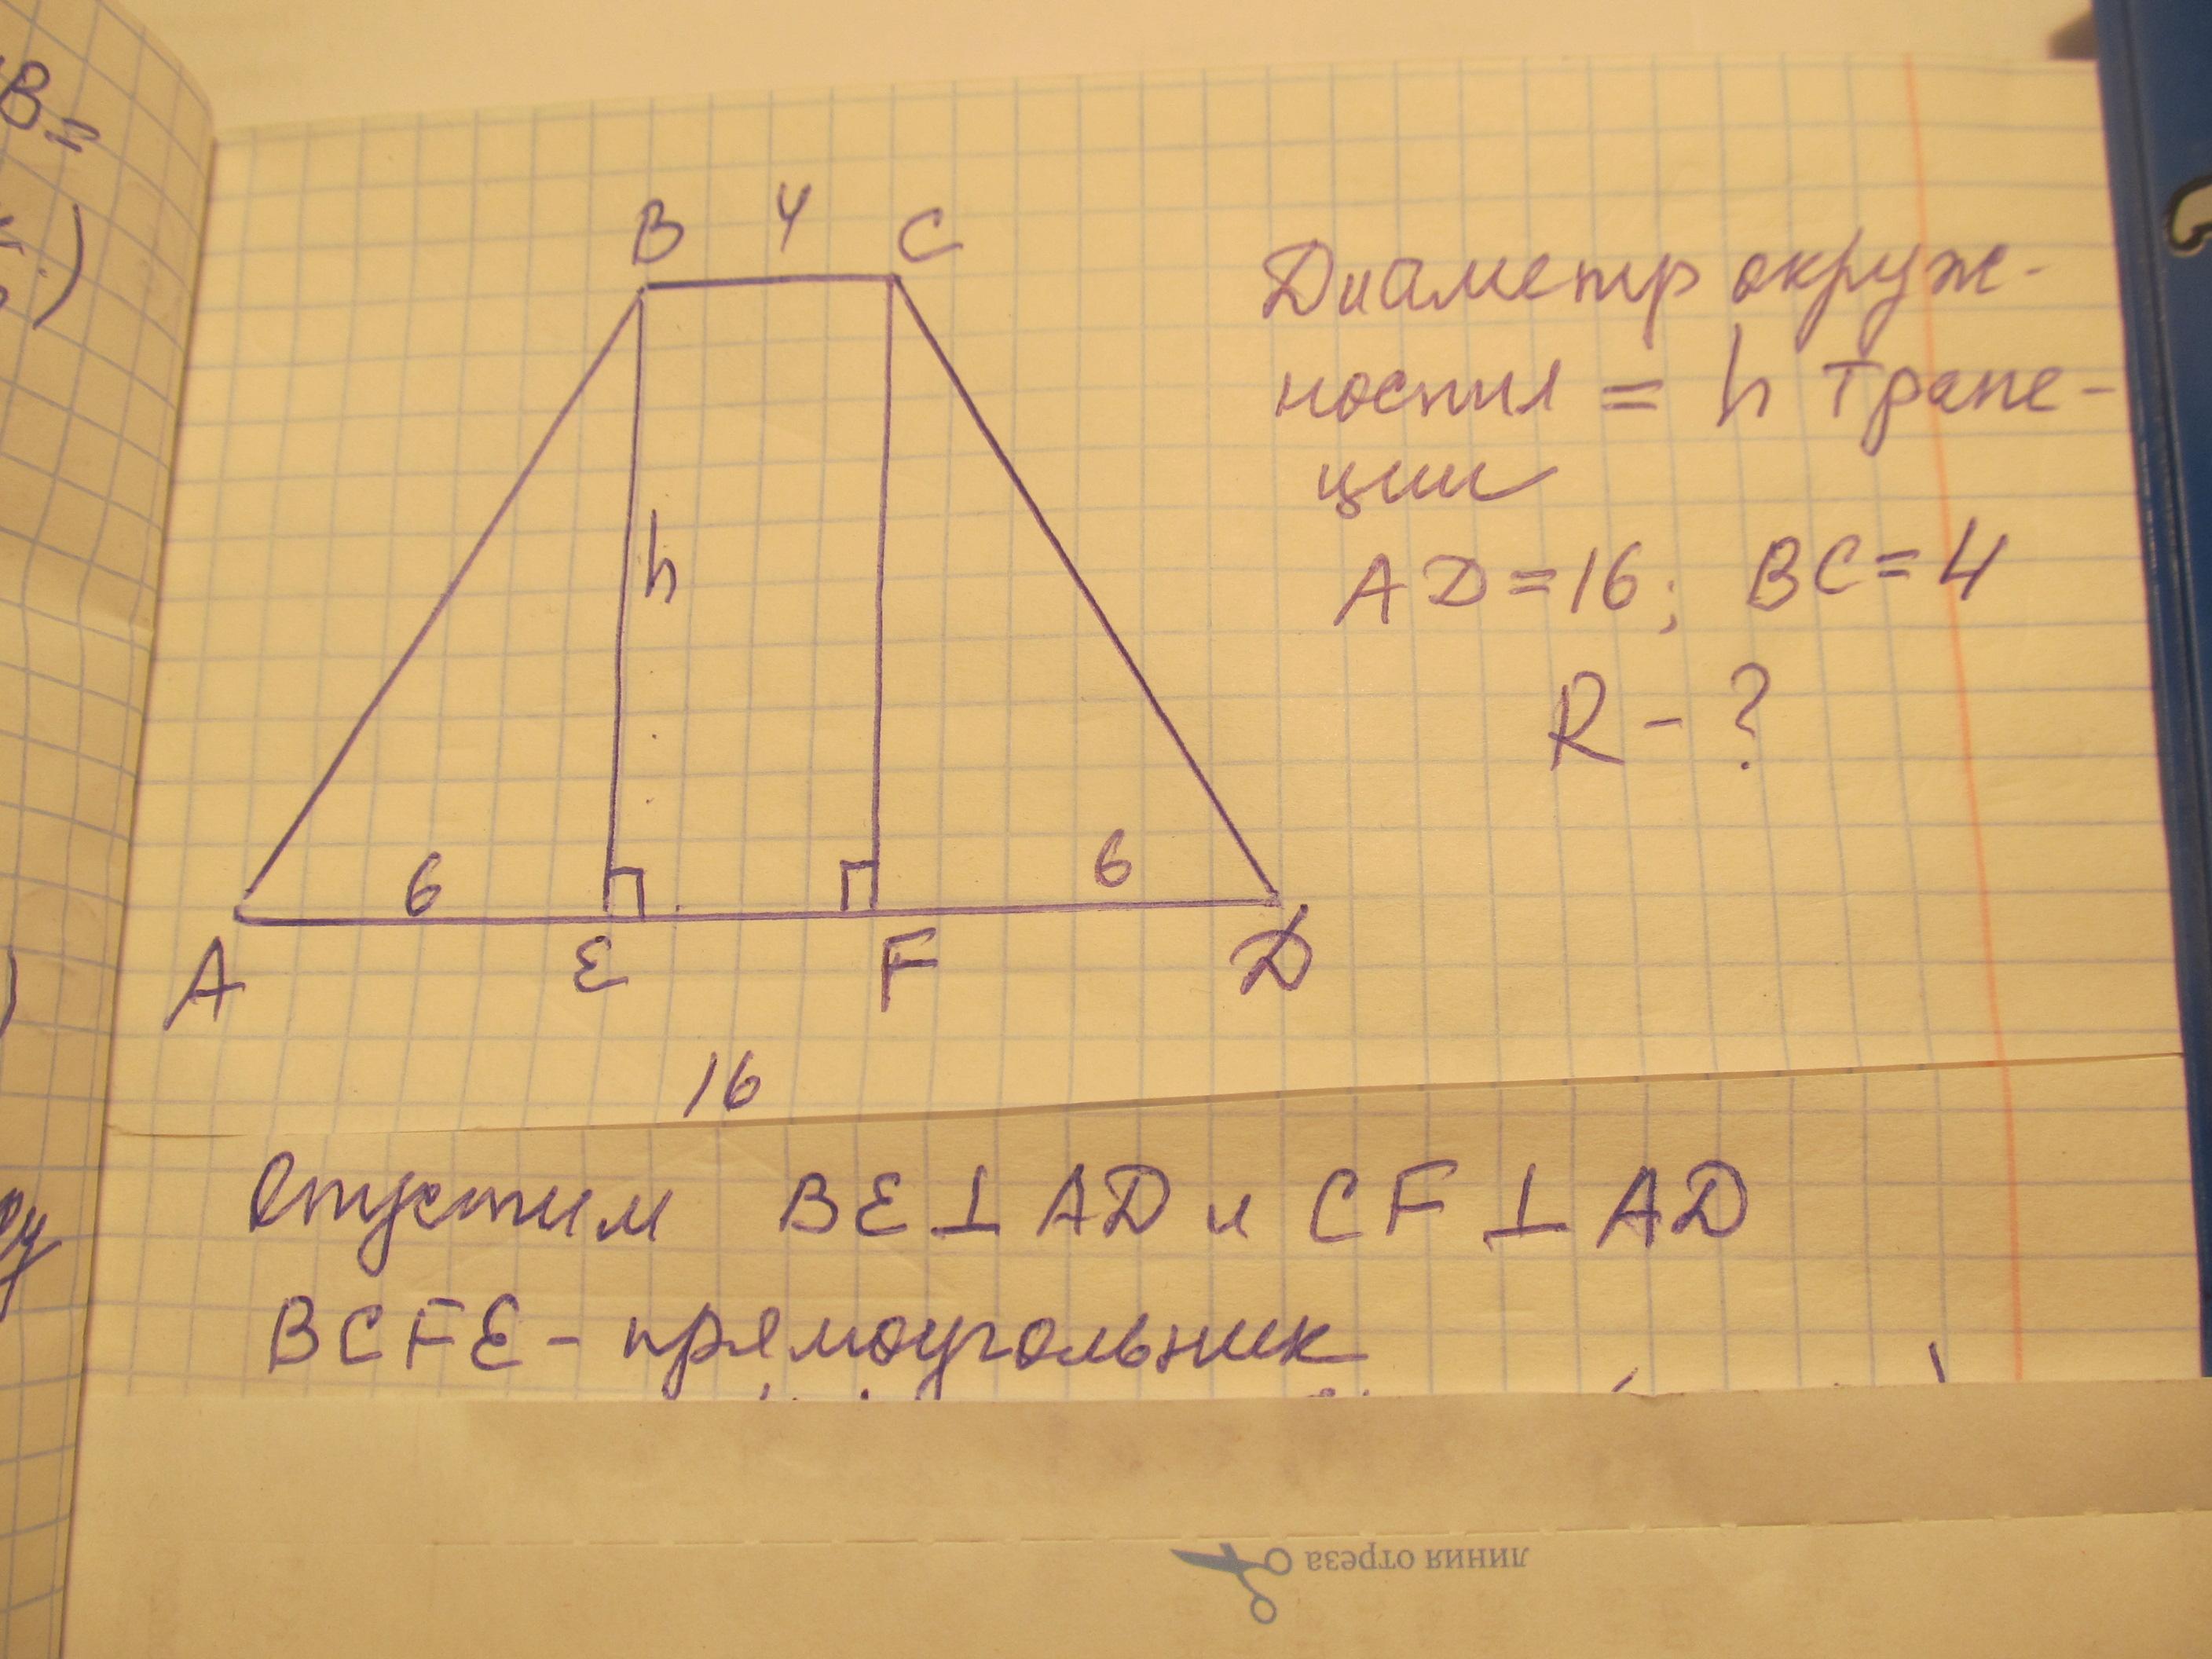 B=
B 4 C
Диаметр окруж-
ности = h трапе-
ции
h
AD=16; BC=4
R - ?
6 6
A E F D
16
Опустим BE⊥AD и CF⊥AD
BCFE - прямоугольник
линия отреза